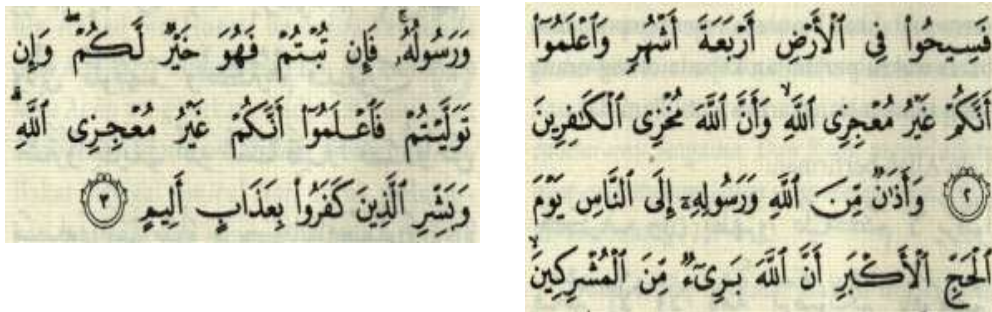 فَسِيحُوا۟ فِى ٱلْأَرْضِ أَرْبَعَةَ أَشْهُرٍ وَٱعْلَمُوٓا۟
أَنَّكُمْ غَيْرُ مُعْجِزِى ٱللَّهِ ۙ وَأَنَّ ٱللَّهَ مُخْزِى ٱلْكَـٰفِرِينَ
٢ وَأَذَٰنٌ مِّنَ ٱللَّهِ وَرَسُولِهِۦٓ إِلَى ٱلنَّاسِ يَوْمَ
ٱلْحَجِّ ٱلْأَكْبَرِ أَنَّ ٱللَّهَ بَرِىٓءٌ مِّنَ ٱلْمُشْرِكِينَ ۙ
وَرَسُولُهُۥ ۚ فَإِن تُبْتُمْ فَهُوَ خَيْرٌ لَّكُمْ ۖ وَإِن
تَوَلَّيْتُمْ فَٱعْلَمُوٓا۟ أَنَّكُمْ غَيْرُ مُعْجِزِى ٱللَّهِ ۗ
وَبَشِّرِ ٱلَّذِينَ كَفَرُوا۟ بِعَذَابٍ أَلِيمٍ ٣